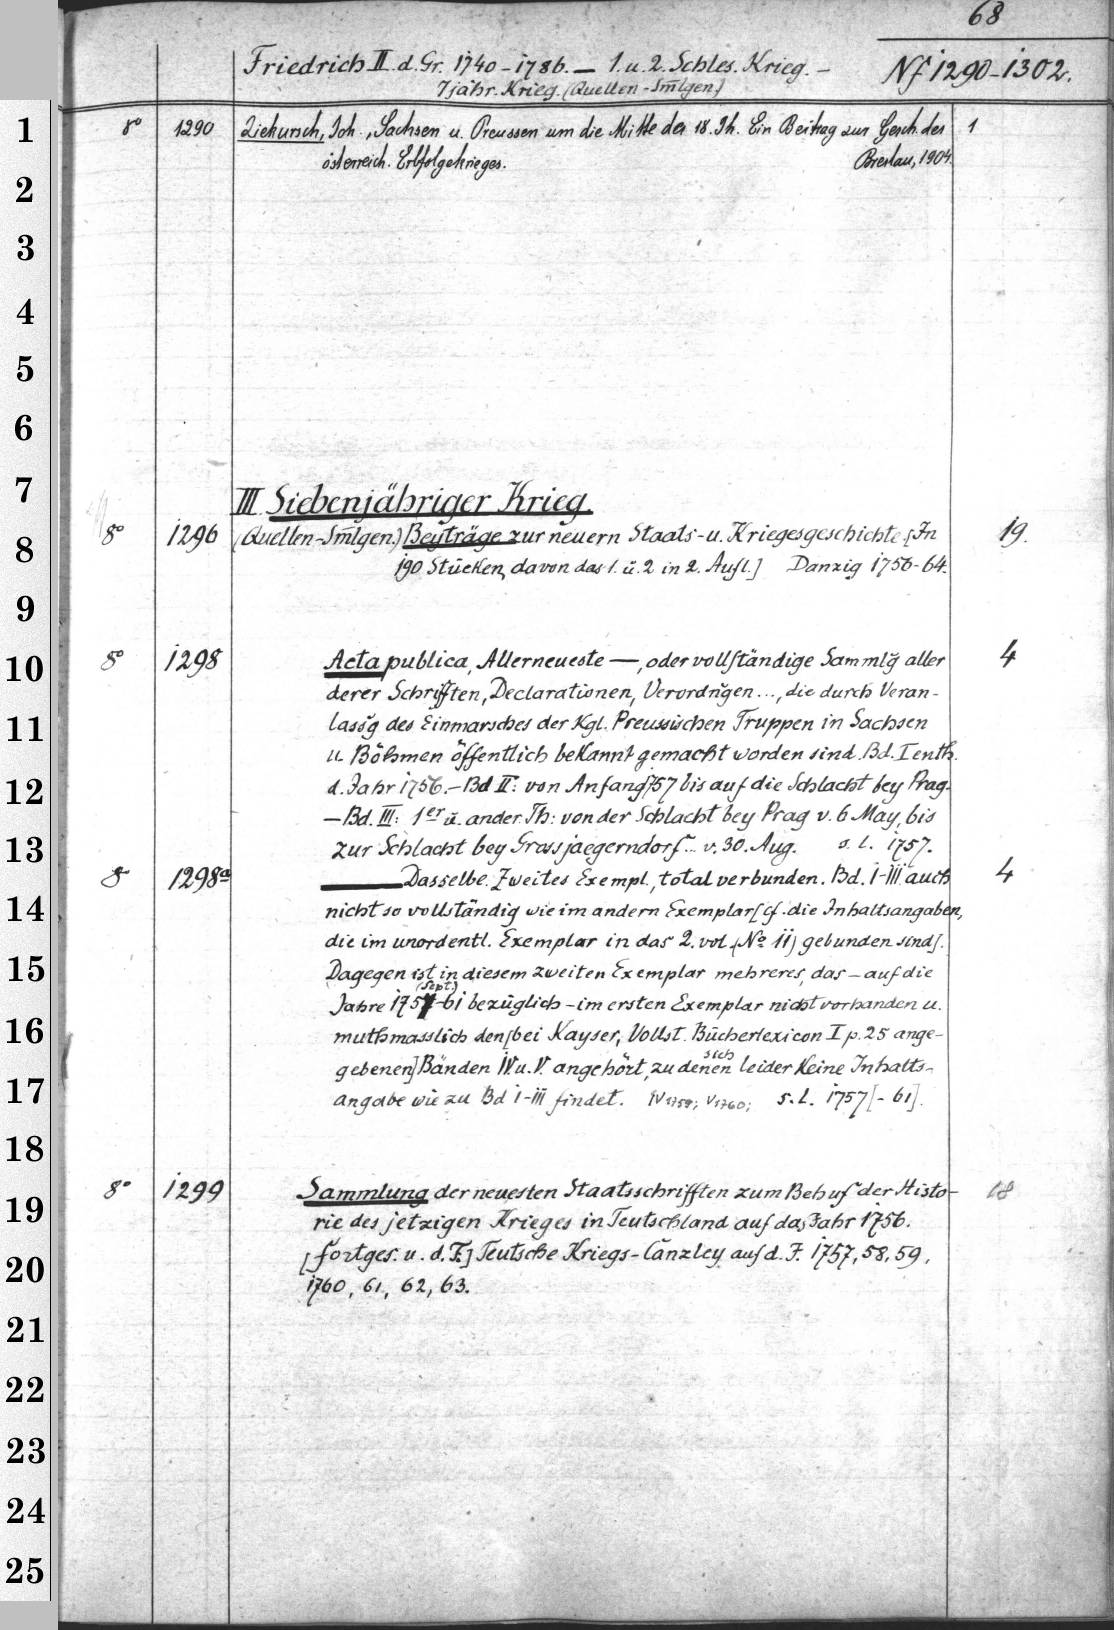 68
Friedrich II. d. Gr. 1740-1786. — 1. u. 2. Schles. Krieg. — Nf 1290-1302.
7jähr. Krieg. (Quellen-Sm̅lgen.)
1
8° 1290 Ziekursch, Joh., Sachsen u. Preussen um die Mitte des 18. Jh. Ein Beitrag zur Gesch. des 1
österreich. Erbfolgekrieges. Breslau, 1904.
2
3
4
5
6
7
III Siebenjähriger Krieg.
8
8° 1296 (Quellen-Sm̅lgen.) Beyträge zur neuern Staats- u. Kriegesgeschichte. [In 19.
190 Stücken, davon das 1. u. 2 in 2. Aufl.] Danzig 1756-64.
9
10
8° 1298 Acta publica, Allerneueste —, oder vollständige Samml̆g aller 4
derer Schrifften, Declarationen, Verordn̆gen ..., die durch Veran-
11
lass̆g des Einmarsches der Kgl. Preussischen Truppen in Sachsen
u. Böhmen öffentlich bekannt gemacht worden sind. Bd. I enth.
12
d. Jahr 1756. — Bd II: von Anfang 1757 bis auf die Schlacht bey Prag.
— Bd. III: 1er u. ander Th: von der Schlacht bey Prag v. 6 May, bis
13
zur Schlacht bey Grossjaegerndorf ... v. 30. Aug. s. l. 1757.
8 1298a — Dasselbe. Zweites Exempl., total verbunden. Bd. I-III auch 4
14
nicht so vollständig wie im andern Exemplar [cf. die Inhaltsangaben,
die im unordentl. Exemplar in das 2. vol. (No II) gebunden sind].
15
Dagegen ist in diesem zweiten Exemplar mehreres, das — auf die
(Sept.)
Jahre 1757-61 bezüglich — im ersten Exemplar nicht vorhanden u.
16
muthmasslich den [bei Kayser, Vollst. Bücherlexicon I p. 25 ange-
sich
gebenen] Bänden IV u. V. angehört, zu denen leider keine Inhalts-
17
angabe wie zu Bd I-III findet. IV 1759; V 1760; s. l. 1757 [- 61].
18
19
8° 1299 Sammlung der neuesten Staatsschrifften zum Behuf der Histo- 18
rie des jetzigen Krieges in Teutschland auf das Jahr 1756.
20
[fortges. u. d. T.] Teutsche Kriegs-Canzley auf d. J. 1757, 58, 59,
1760, 61, 62, 63.
21
22
23
24
25